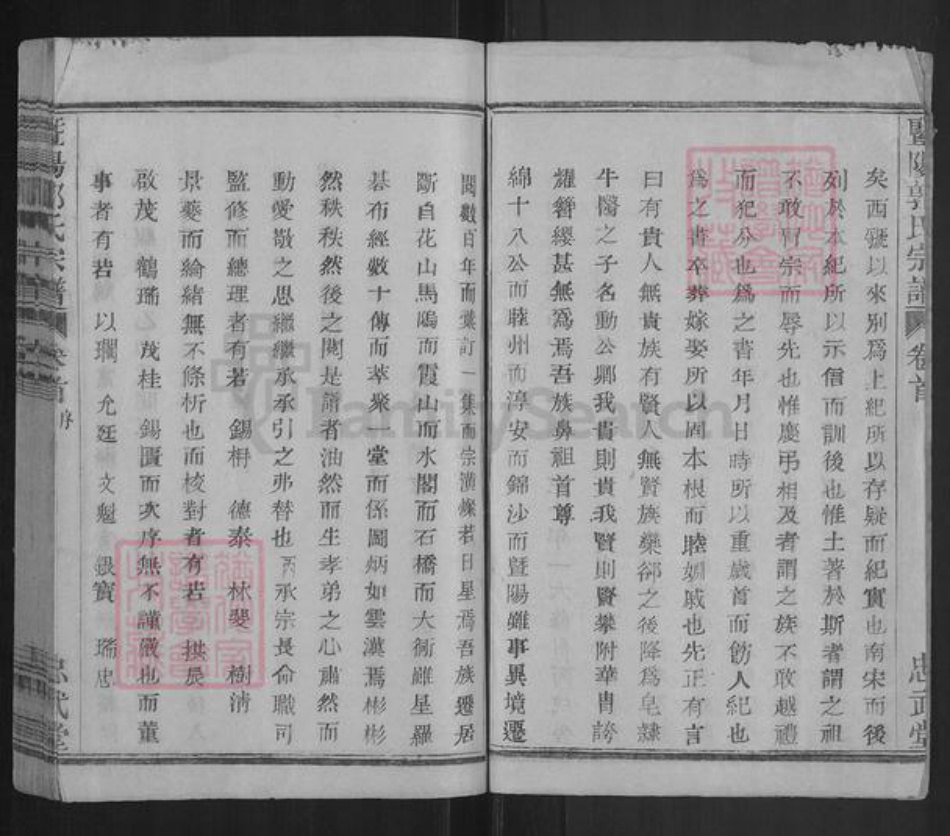 暨陽郭氏宗譜 卷首 忠武堂
矣西虢以來別爲上紀所以存疑而紀實也南宋而後
列於本紀所以示信而訓後也惟土著於斯者謂之祖
不敢冒宗而辱先也惟慶弔相及者謂之族不敢越禮
而犯分也爲之書年月日時所以重歲首而飭人紀也
爲之書卒葬嫁娶所以固本根而睦姻戚也先正有言
曰有貴人無貴族有賢人無賢族欒郤之後降爲皂隸
牛醫之子名動公卿我貴則貴我賢則賢攀附華胄誇
耀簪纓甚無爲焉吾族鼻祖首尊
綿十八公而睦州而淳安而錦沙而暨陽雖事異境遷
閱數百年而彙訂一集而宗潢燦若日星焉吾族遷居
斷自花山馬塢而霞山而水閣而石橋而大衕雖星羅
棊布經數十傳而萃聚一堂而係圖炳如雲漢焉彬彬
然秩秩然後之閱是譜者油然而生孝弟之心肅然而
動愛敬之思繼繼承承引之弗替也丙承宗長命職司
監修而總理者有若 錫枬 德泰 林斐 樹淸
景蕤而綸緒無不條析也而校對者有若 拱辰
啟茂鶴瑞茂桂錫匱而次序無不謹嚴也而董
事者有若 以瓓允廷文魁 銀寶 瑞忠
暨陽郭氏宗譜 卷首 序 忠武堂
FamilySearch